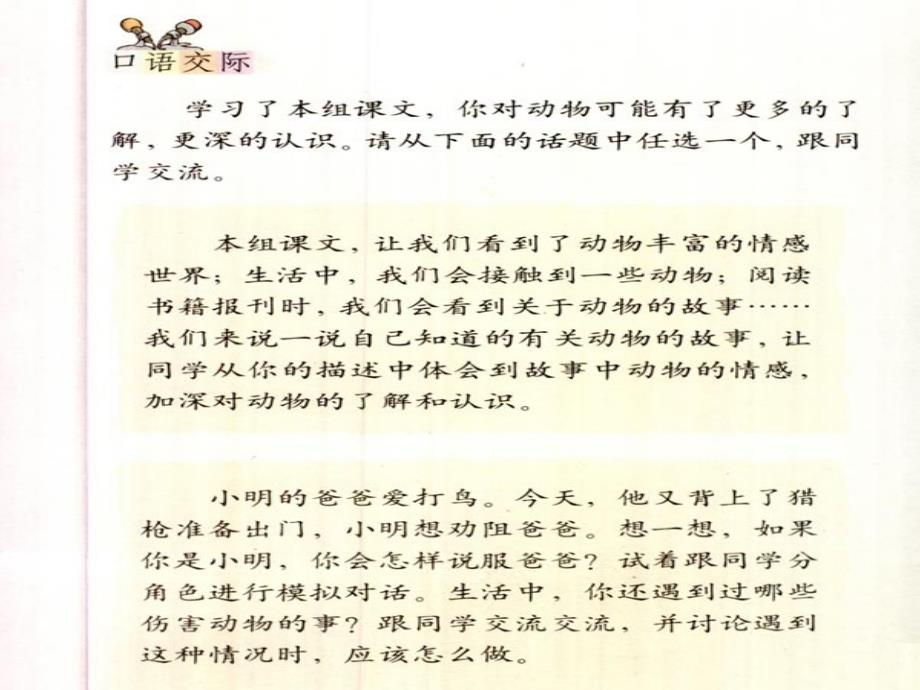 口语交际
学习了本组课文，你对动物可能有了更多的了
解，更深的认识。请从下面的话题中任选一个，跟同
学交流。
本组课文，让我们看到了动物丰富的情感
世界；生活中，我们会接触到一些动物；阅读
书籍报刊时，我们会看到关于动物的故事……
我们来说一说自己知道的有关动物的故事，让
同学从你的描述中体会到故事中动物的情感，
加深对动物的了解和认识。
小明的爸爸爱打鸟。今天，他又背上了猎
枪准备出门，小明想劝阻爸爸。想一想，如果
你是小明，你会怎样说服爸爸？试着跟同学分
角色进行模拟对话。生活中，你还遇到过哪些
伤害动物的事？跟同学交流交流，并讨论遇到
这种情况时，应该怎么做。